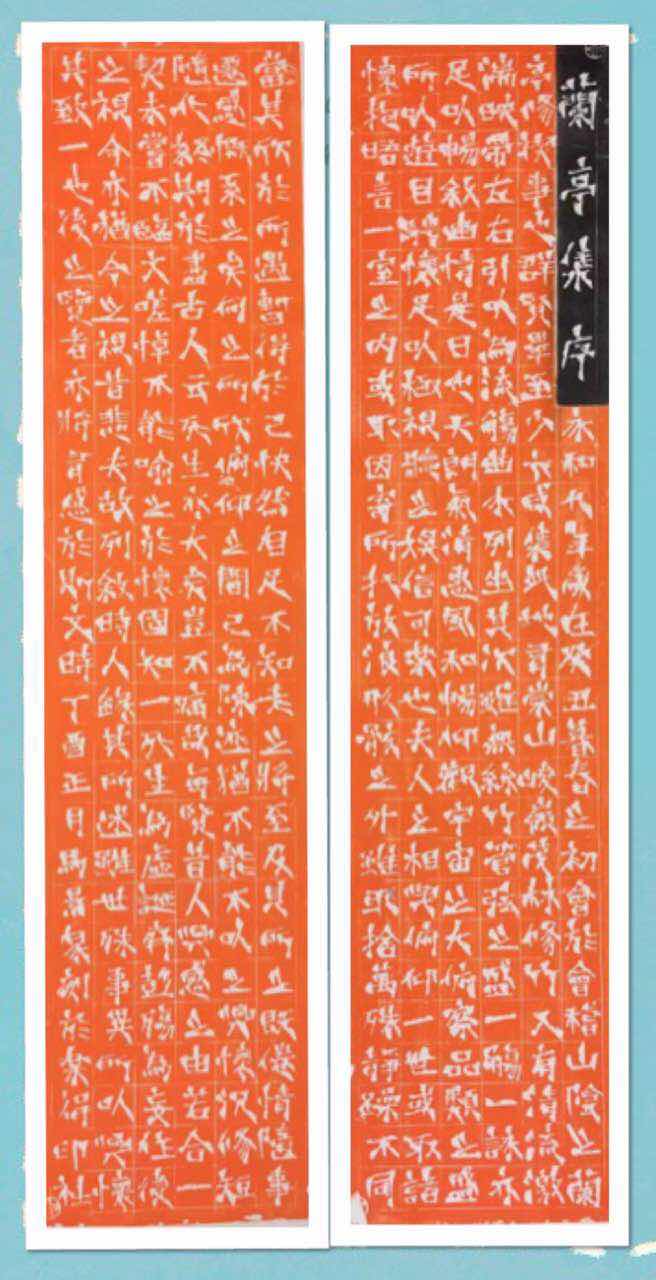 蘭亭集序
永和九年歲在癸丑暮春之初會於會稽山陰之蘭
亭修禊事也群賢畢至少長咸集此地有崇山峻嶺茂林修竹又有清流激
湍映帶左右引以為流觴曲水列坐其次雖無絲竹管弦之盛一觴一詠亦
足以暢敘幽情是日也天朗氣清惠風和暢仰觀宇宙之大俯察品類之盛
所以遊目騁懷足以極視聽之娛信可樂也夫人之相與俯仰一世或取諸
懷抱晤言一室之內或取因寄所託放浪形骸之外雖取捨萬殊靜躁不同
當其欣於所遇暫得於己快然自足不知老之將至及其所之既倦情隨事
遷感慨系之矣向之所欣俯仰之間已為陳迹猶不能不以之興懷況修短
隨化終期於盡古人云死生亦大矣豈不痛哉每覽昔人興感之由若合一
契未嘗不臨文嗟悼不能喻之於懷固知一死生為虛誕齊彭殤為妄作後
之視今亦猶今之視昔悲夫故列敘時人錄其所述雖世殊事異所以興懷
其致一也後之覽者亦將有感於斯文時丁酉正月馬刻於樂得印社